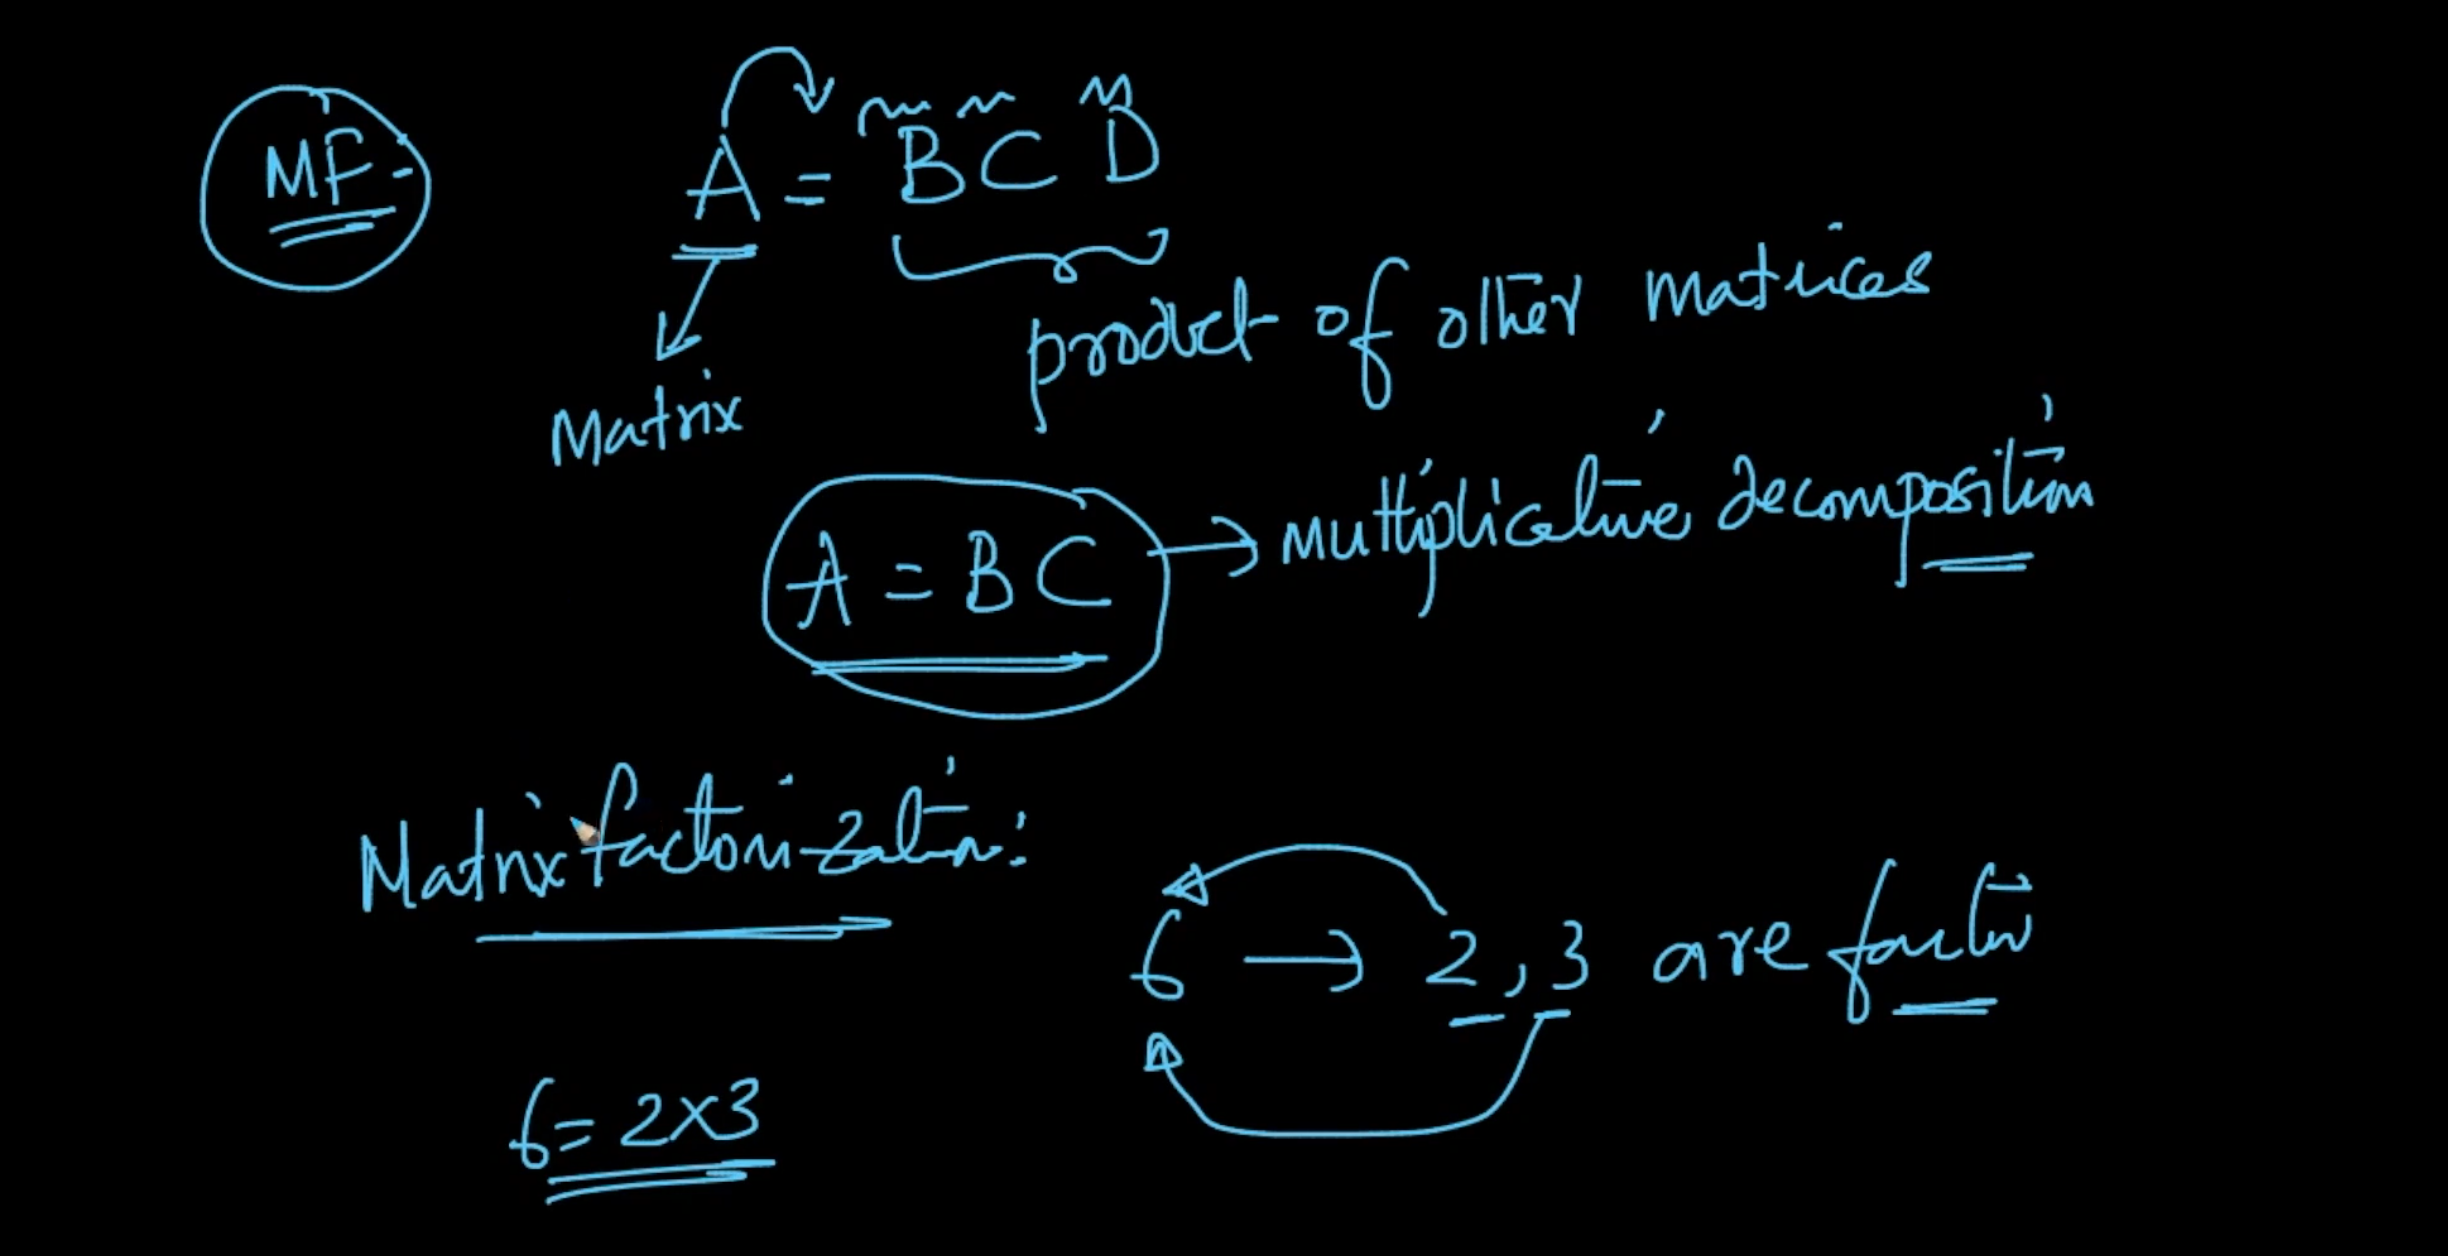 MF
A = B C D
product of other matrices
Matrix
A = B C → multiplicative decomposition
Matrix factorization:
6 → 2, 3 are factors
6 = 2x3